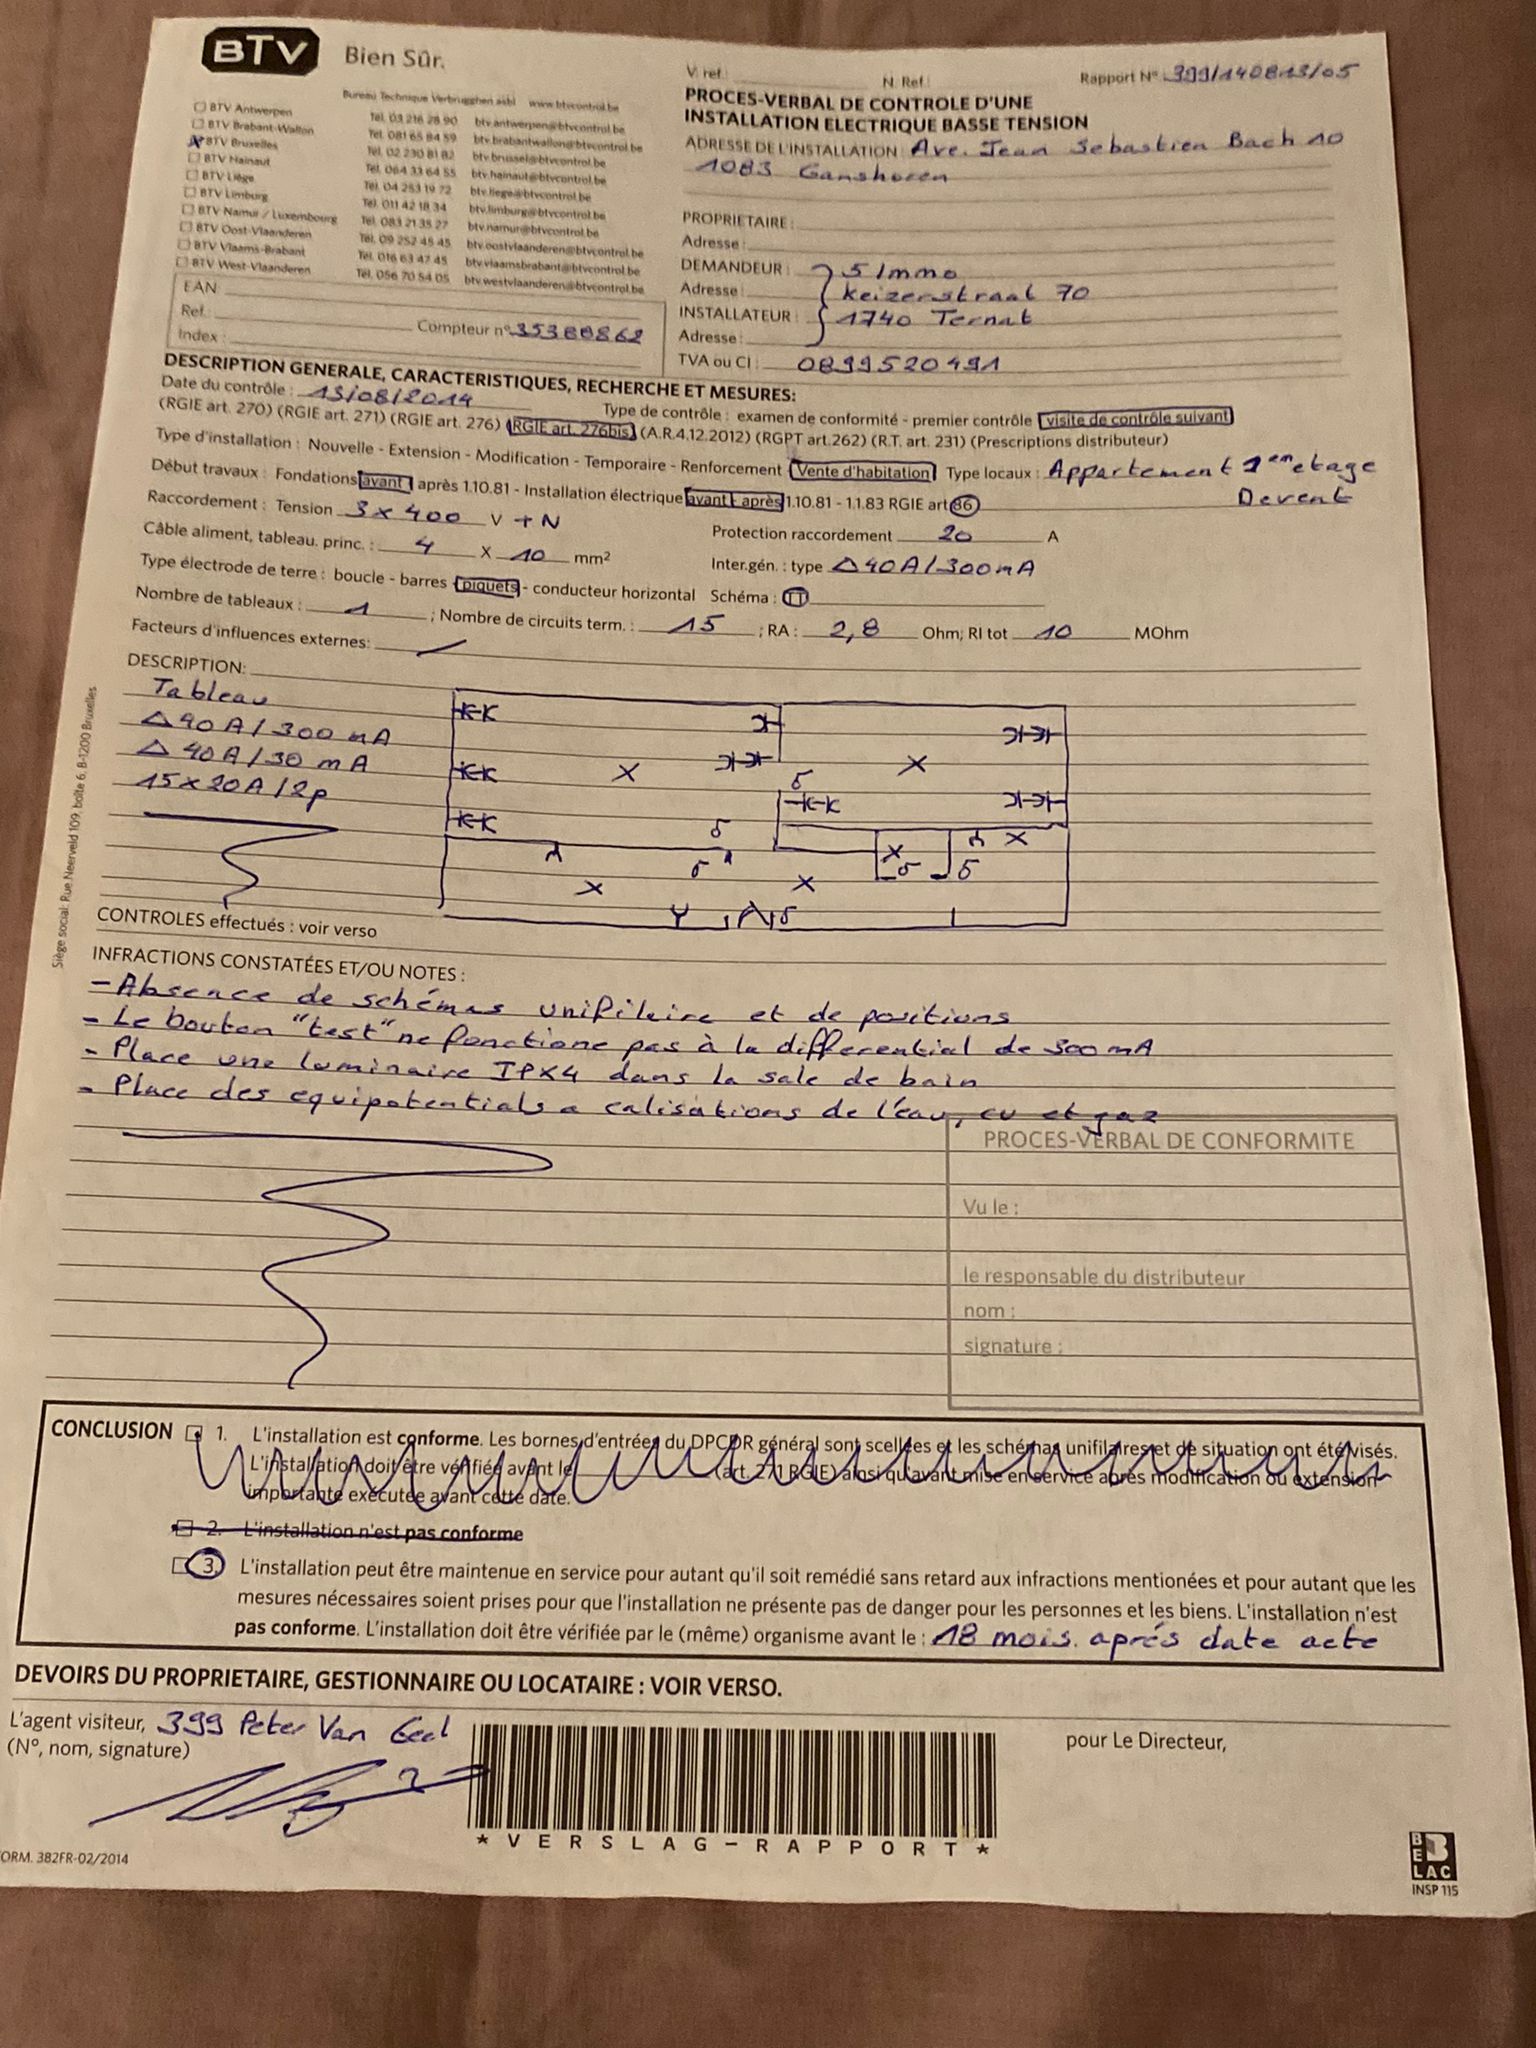 BTV Bien Sûr.
V. ref. N. Ref. Rapport N° 399/140813/05
Bureau Technique Verbrugghen asbl www.btvcontrol.be
PROCES-VERBAL DE CONTROLE D'UNE
INSTALLATION ELECTRIQUE BASSE TENSION
BTV Antwerpen Tél. 03 216 28 90 btv.antwerpen@btvcontrol.be
BTV Brabant-Wallon Tél. 081 65 84 59 btv.brabantwallon@btvcontrol.be
BTV Bruxelles Tél. 02 230 81 82 btv.brussel@btvcontrol.be
BTV Hainaut Tél. 064 33 64 55 btv.hainaut@btvcontrol.be
BTV Liège Tél. 04 253 19 72 btv.liege@btvcontrol.be
BTV Limburg Tél. 011 42 18 34 btv.limburg@btvcontrol.be
BTV Namur / Luxembourg Tél. 083 21 35 27 btv.namur@btvcontrol.be
BTV Oost-Vlaanderen Tél. 09 252 45 45 btv.oostvlaanderen@btvcontrol.be
BTV Vlaams-Brabant Tél. 016 63 47 45 btv.vlaamsbrabant@btvcontrol.be
BTV West-Vlaanderen Tél. 056 70 54 05 btv.westvlaanderen@btvcontrol.be
ADRESSE DE L'INSTALLATION : Ave. Jean Sebastien Bach 10
1083 Ganshoren
PROPRIETAIRE :
Adresse :
DEMANDEUR : 5 Immo
Adresse : Keizerstraat 70
INSTALLATEUR : 1740 Ternat
Adresse :
TVA ou CI : 0899520491
EAN:
Ref. :
Compteur n° 35388862
Index :
DESCRIPTION GENERALE, CARACTERISTIQUES, RECHERCHE ET MESURES:
Date du contrôle : 13/08/2014 Type de contrôle : examen de conformité - premier contrôle visite de contrôle suivant
(RGIE art. 270) (RGIE art. 271) (RGIE art. 276) (RGIE art. 276bis) (A.R.4.12.2012) (RGPT art.262) (R.T. art. 231) (Prescriptions distributeur)
Type d'installation : Nouvelle - Extension - Modification - Temporaire - Renforcement Vente d'habitation Type locaux : Appartement 1em etage
Devent
Début travaux : Fondations avant après 1.10.81 - Installation électrique avant - après 1.10.81 - 1.1.83 RGIE art 86
Raccordement : Tension 3 x 400 V + N Protection raccordement 20 A
Câble aliment, tableau. princ. : 4 X 10 mm² Inter.gén. : type Δ 40 A / 300 mA
Type électrode de terre : boucle - barres - piquets - conducteur horizontal Schéma : TT
Nombre de tableaux : 1 ; Nombre de circuits term. : 15 ; RA : 2,8 Ohm; RI tot 10 MOhm
Facteurs d'influences externes:
DESCRIPTION:
Tableau
Δ 40 A / 300 mA
Δ 40 A / 30 mA
15 x 20 A / 2p
CONTROLES effectués : voir verso
INFRACTIONS CONSTATÉES ET/OU NOTES :
- Absence de schémas unifilaire et de positions
- Le bouton "test" ne fonctione pas à la differential de 300 mA
- Place une luminaire IPX4 dans la sale de bain
- Place des equipotentials a calisations de l'eau, cv et gaz
PROCES-VERBAL DE CONFORMITE
Vu le :
le responsable du distributeur
nom :
signature :
CONCLUSION 1. L'installation est conforme. Les bornes d'entrées du DPCDR général sont scellées et les schémas unifilaires et de situation ont été visés.
L'installation doit être vérifiée avant le (art. 271 RGIE) ainsi qu'avant mise en service après modification ou extension
importante exécutée avant cette date.
2. L'installation n'est pas conforme
3. L'installation peut être maintenue en service pour autant qu'il soit remédié sans retard aux infractions mentionées et pour autant que les
mesures nécessaires soient prises pour que l'installation ne présente pas de danger pour les personnes et les biens. L'installation n'est
pas conforme. L'installation doit être vérifiée par le (même) organisme avant le : 18 mois. après date acte
DEVOIRS DU PROPRIETAIRE, GESTIONNAIRE OU LOCATAIRE : VOIR VERSO.
L'agent visiteur, 399 Peter Van Geel
(N°, nom, signature)
pour Le Directeur,
*VERSLAG-RAPPORT*
ORM. 382FR-02/2014
BELAC
INSP 115
Siège social: Rue Neerveld 109, boîte 6, B-1200 Bruxelles